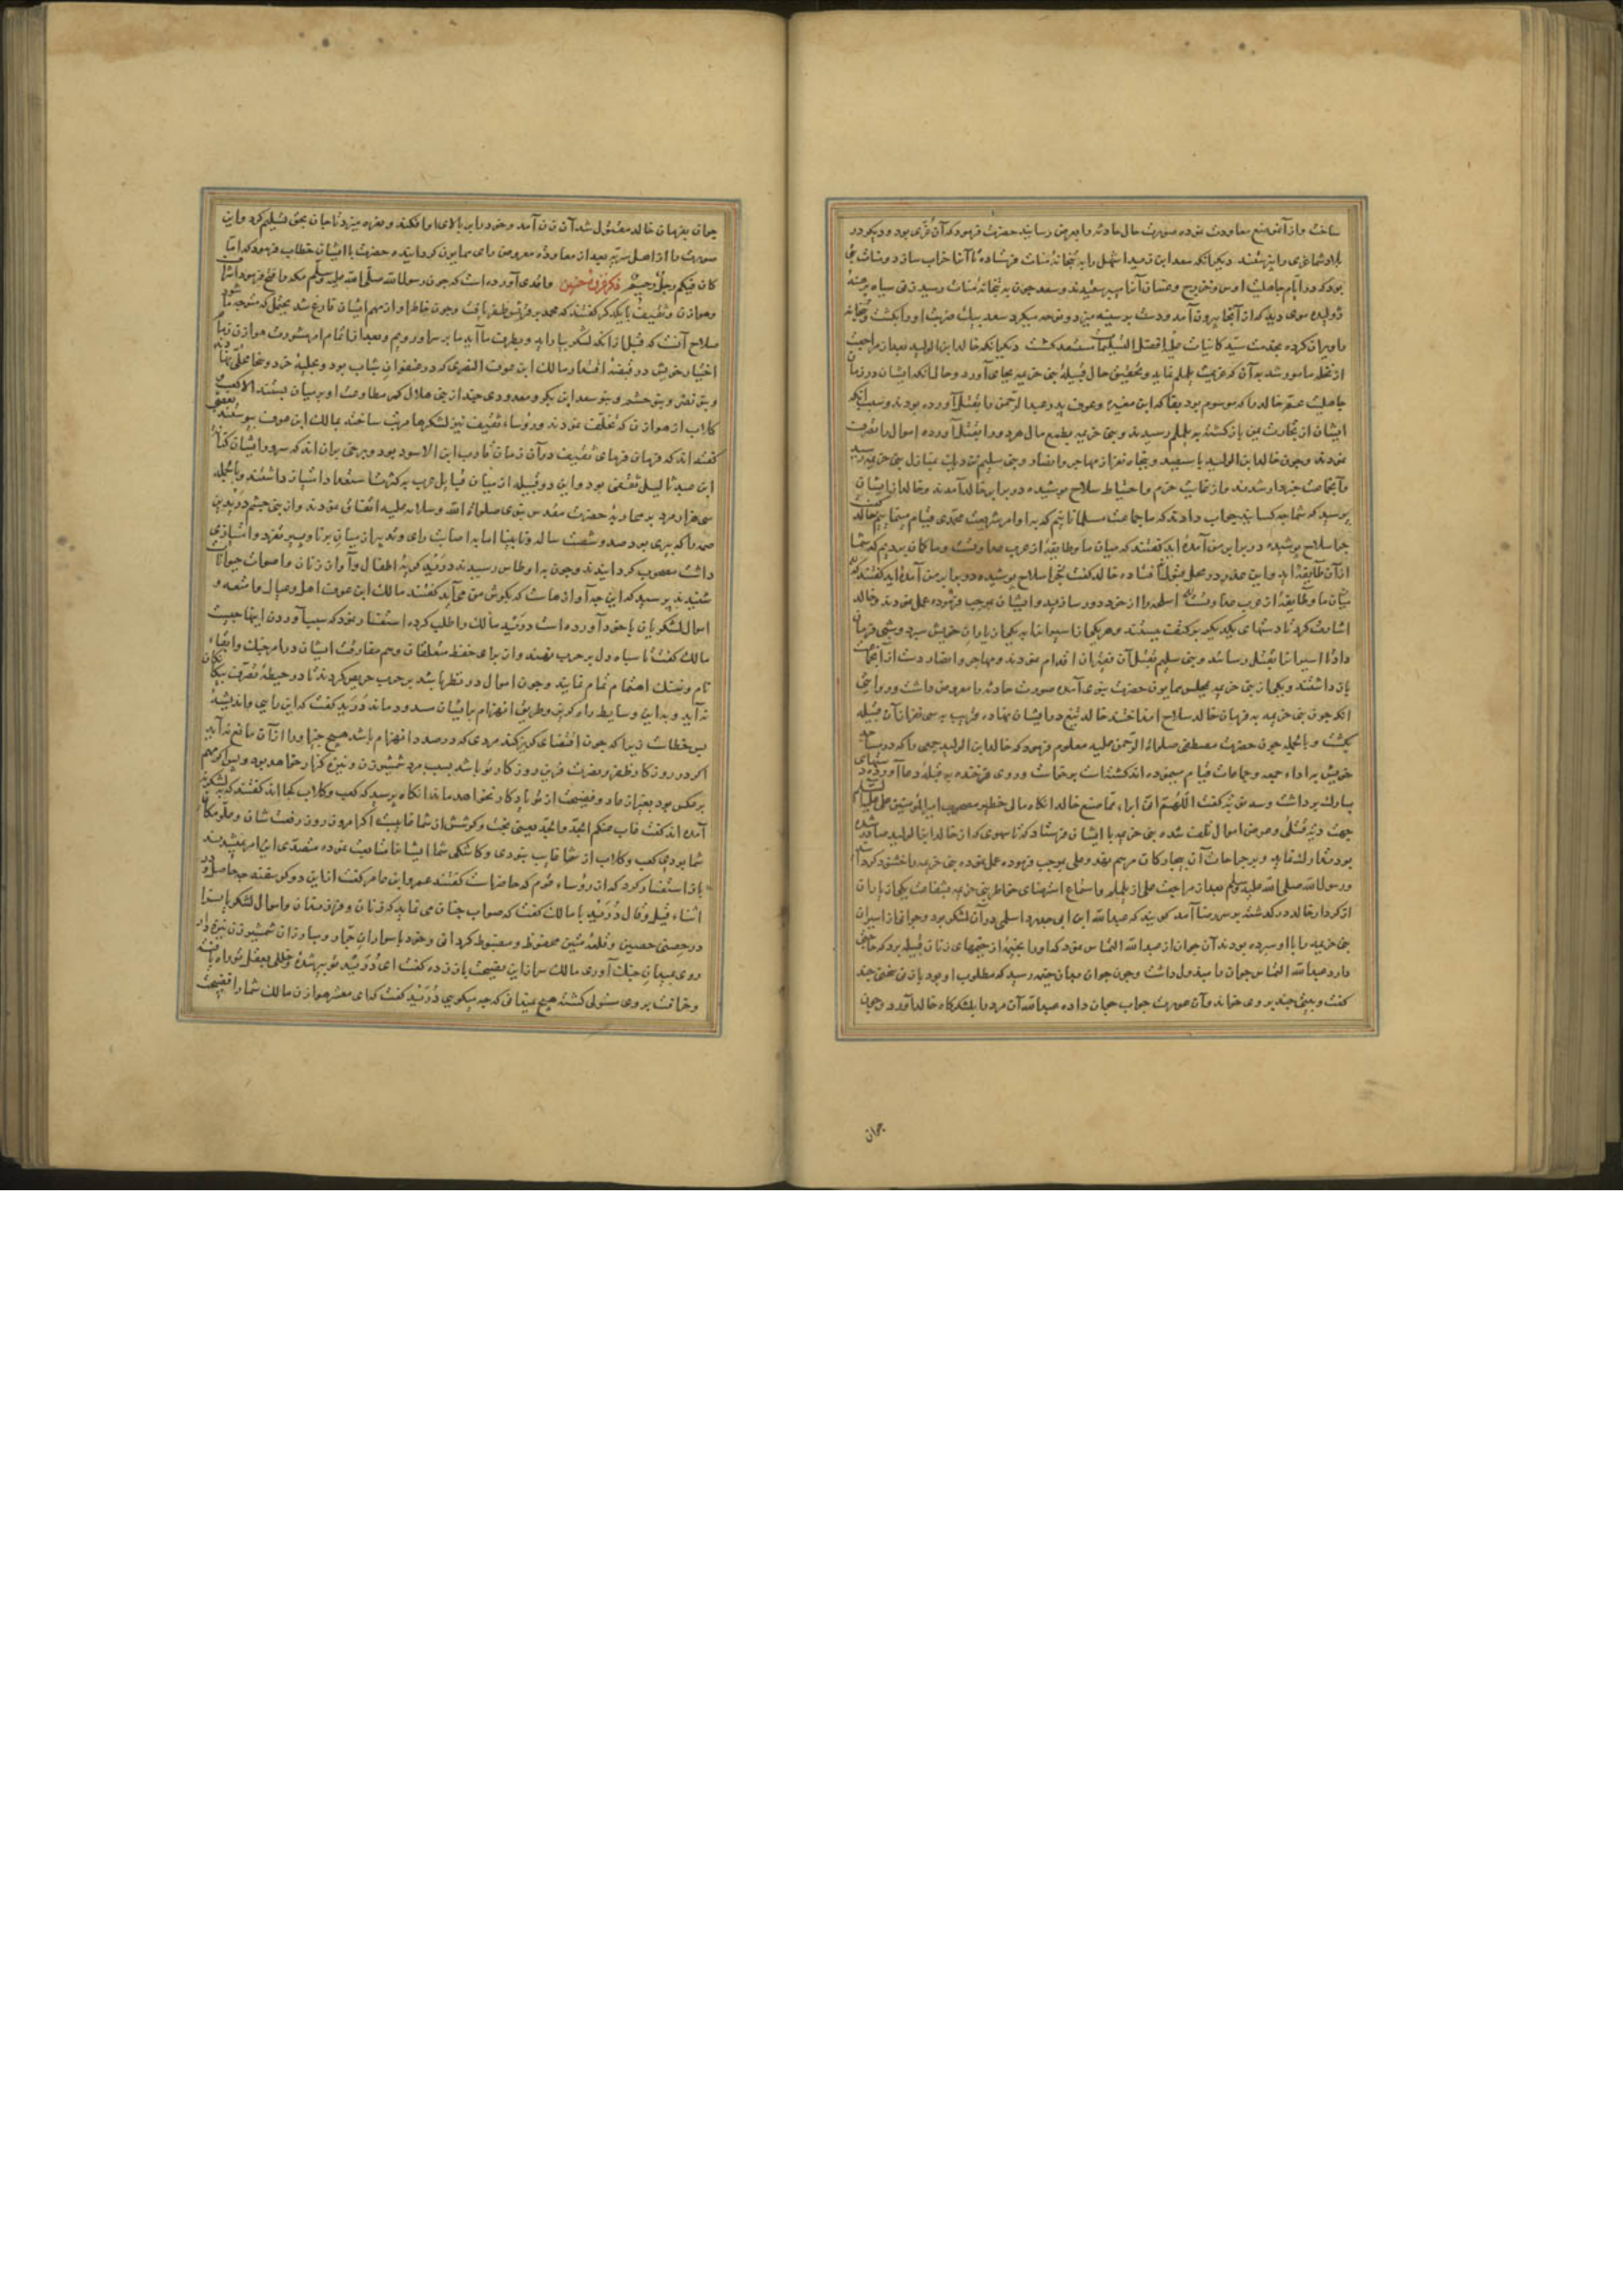 ساخت واز آنش منع معاودت نموده صورت حال حادثه را بعرض رسانید حضرت فرمود که آن عزی بود و دیگر در
بلاد شما عزی را نپرستند دیگر آنکه سعد ابن زید اشهل را به بتخانهٔ منات فرستاده تا آنرا خراب سازد و منات بتی
بود که در ایام جاهلیت اوس و خزرج و غسان آنرا می پرستیدند و سعد چون به بتخانهٔ منات رسید زنی سیاه برهنهٔ
ژولیده موی دید که از آنجا بیرون آمد و دست بر سینه میزد و نوحه میکرد سعد بیک ضربت او را بکشت و بتخانه
را ویران کرده بخدمت سید کاینات علیه افضل التسلیمات مستعد گشت دیگر آنکه خالد ابن الولید بعد از مراجعت
از نخله مامور شد به آن که عزیمت یلملم نماید و تحقیق حال قبیلهٔ بنی خزیمه بجای آورد و حال آنکه ایشان در زمان
جاهلیت عم خالد را که موسوم بود بفاکه ابن مغیره و عوف پدر عبد الرحمن را بقتل آورده بودند و سبب آنکه
ایشان از تجارت یمن باز گشته به یلملم رسیدند و بنی خزیمه بطمع مال هر دو را بقتل آورده اموال را تصرف
نمودند و چون خالد ابن الولید با سیصد و پنجاه نفر از مهاجر و انصار و بنی سلیم نزدیک بمنازل بنی خزیمه رسید
آنجماعت خبردار شدند و از غایت حزم و احتیاط سلاح پوشیده در برابر خالد آمدند و خالد از ایشان
پرسید که شما چه کسانید جواب دادند که ما جماعت مسلمانانیم که به اوامر شریعت محمدی قیام مینماییم خالد گفت
چرا سلاح پوشیده در برابر من آمده اید گفتند که میان ما و طایفهٔ از عرب عداوتست و ما گمان بردیم که شما
از آن طایفه اید و این عذر در محل قبول نیفتاده خالد گفت چرا سلاح پوشیده در برابر من آمده اید گفتند که
میان ما و طایفهٔ از عرب عداوتست گفت اسلحه را از خود دور سازید و ایشان بموجب فرموده عمل نمودند و خالد
اشارت کرد تا دستهای یکدیگر بر کتف بستند و هر یک از اسیران را به یک از یاران خویش سپرد و شبی فرمان
داد تا اسیران را بقتل رسانند و بنی سلیم بقتل آن فقیران اقدام نمودند و مهاجر و انصار دست از آنجماعت
باز داشتند و یکی از بنی خزیمه بمجلس همایون حضرت نبوی آمده صورت حادثه را معروض داشت و روایتی
آنکه چون بنی خزیمه به فرمان خالد سلاح انداختند خالد تیغ در ایشان نهاده قریب به سی نفر از آن قبیله
بکشت و بالجمله چون حضرت مصطفی صلوات الرحمن علیه معلوم فرمود که خالد ابن الولید جمعی را که در مساجد
خویش به اداء جمعه و جماعات قیام مینموده اند کشته است برخاست و روی فرخنده به قبله دعا آورده دستهای
مبارک برداشت و سه نوبت گفت اللهم انی ابراء مما صنع خالد آنگاه مالی خطیر مصحوب امیر المؤمنین علی علیه السلم
جهت دیهٔ قتلی و عوض اموال تلف شده بنی خزیمه با ایشان فرستاد که تا سهوی که از خالد ابن الولید صادر شده
بود تدارک نماید و بر جراحات آن بیچارگان مرهم نهد و علی بموجب فرموده عمل نموده بنی خزیمه را خشنود گردانید
و رسول الله صلی الله علیه وسلم بعد از مراجعت علی از یلملم و استماع استرضای خاطر بنی خزیمه بشفاعت یکی از یاران
از کردار خالد در گذشته بر سر رضا آمد گویند که عبد الله ابن ابی حدرد اسلمی در آن لشکر بود و جوانی از اسیران
بنی خزیمه را با او سپرده بودند آن جوان از عبد الله التماس نمود که او را بخیمهٔ از خیمهای زنان قبیله برد که حاجتی
دارد عبد الله التماس جوان را مبذول داشت و چون جوان بدان خیمه رسید که مطلوب او بود با زنی سخنی چند
گفت و بیتی چند بر وی خواند و آن عورت جواب جوان داده عبد الله آن مرد را بلشکرگاه خالد آورد و چون
جوان
جوان بفرمان خالد مقتول شد آن زن آمد و خود را بر بالای او افکند و نعره میزد تا جان بحق تسلیم کرد و این
صورت را از اهل سریه بعد از معاودت معروض رای همایون گردانیده حضرت با ایشان خطاب فرمود که اما
کان فیکم رجل رحیم ذکر غزوهٔ حنین واقدی آورده است که چون رسول الله صلی الله علیه وسلم مکه را فتح فرمود اشراف
هوازن و ثقیف با یکدیگر گفتند که محمد بر قریش ظفر یافت و چون خاطر او از مهم ایشان فارغ شد یحتمل که متوجه ما شود
صلاح آنست که قبل از آنکه لشکر بیاراید و بطرف ما آید ما بر سر او رویم و بعد از اتمام امر مشورت هوازن زمام
اختیار خویش در قبضهٔ اقتدار مالک ابن عوف النصری که در عنفوان شباب بود و بحلیهٔ جود و سخا محلی نهادند
و بنو نضر و بنو جشم و بنو سعد ابن بکر و معدودی چند از بنی هلال کمر مطاوعت او بر میان بستند الا کعب و
کلاب از هوازن که تخلف نمودند و رؤساء ثقیف نیز لشکرها مرتب ساخته بمالک ابن عوف پیوستند بعضی
گفته اند که فرمان فرمای ثقیف در آن زمان قارب ابن الاسود بود و برخی بر آن اند که سردار ایشان کنانه
ابن عبد یالیل ثقفی بود و این دو قبیله از میان قبایل عرب به کثرت استعداد امتیاز داشتند و بالجمله
سی هزار مرد بر محاربهٔ حضرت مقدس نبوی صلوات الله وسلامه علیه اتفاق نمودند و از بنی جشم درید بن
صمه را که پیری بود صد و شصت ساله و نابینا اما به اصابت رای و تدبیر از میان برنا و پیر تفرد و امتیازی
داشت مصحوب گردانیدند و چون به اوطاس رسیدند درید گریهٔ اطفال و آواز زنان و اصوات حیوانات
شنیده پرسید که این چه آوازهاست که بگوش من می آید گفتند مالک ابن عوف اهل و عیال و امتعه و
اموال لشکریان با خود آورده است درید مالک را طلب کرده استفسار نمود که سبب آوردن اینها چیست
مالک گفت تا سپاه دل بر حرب نهند و از برای حفظ متعلقان و بیم مفارقت ایشان در امر جنگ و ابقاء
نام و ننگ اهتمام تمام نمایند و چون اموال در نظر باشد بر حرب حریص گردند تا در حیطهٔ تصرف بیگانگان
نه آید و بدین وسایط راه گریز و طریق انهزام بر ایشان مسدود ماند درید گفت که این رای و اندیشهٔ
بس خطاست زیرا که چون اقتضای گریز کند مردی که در صدد انهزام باشد هیچ چیز او را از آن مانع نه آید
اگر در روز کار ظفر و نصرت قرین روزگار تو باشد بسبب مرد شمشیر زن و نیزه گذار خواهد بود و بس اگر مهم
بر عکس بود بغیر از عار و فضیحت از تو یادگار نخواهد ماند آنگاه پرسید که کعب و کلاب کجا اند گفتند که به لشکر نه
آمده اند گفت غاب عنکم الجد والحد یعنی بخت و کوشش از شما غایبست اگر امروز روز رفعت شان و علو مکان
شما بودی کعب و کلاب از شما غایب نبودی و کاشکی شما ایشان را متابعت نموده متصدی این امر نمیشدید
باز استفسار کرد که از رؤساء قوم که حاضراست گفتند عمرو ابن عامر گفت از این دو کوسفند چه حاصل و در
اثناء قیل و قال درید با مالک گفت که صواب چنان می نماید که زنان و فرزندان و اموال لشکر را
در حصنی حصین و قلعهٔ متین محفوظ و مضبوط گردانی و خود با سواران جرار و مبارزان شمشیر زن نیزه دار
روی بمیدان جنگ آوری مالک سر از این نصیحت باز زده گفت ای درید تو پیر شدهٔ و خللی بعقل تو راه یافته
و خرافت بر وی مستولی گشته هیچ نمیدانی که چه میگویی درید گفت که ای معشر هوازن مالک شما را فضیحت